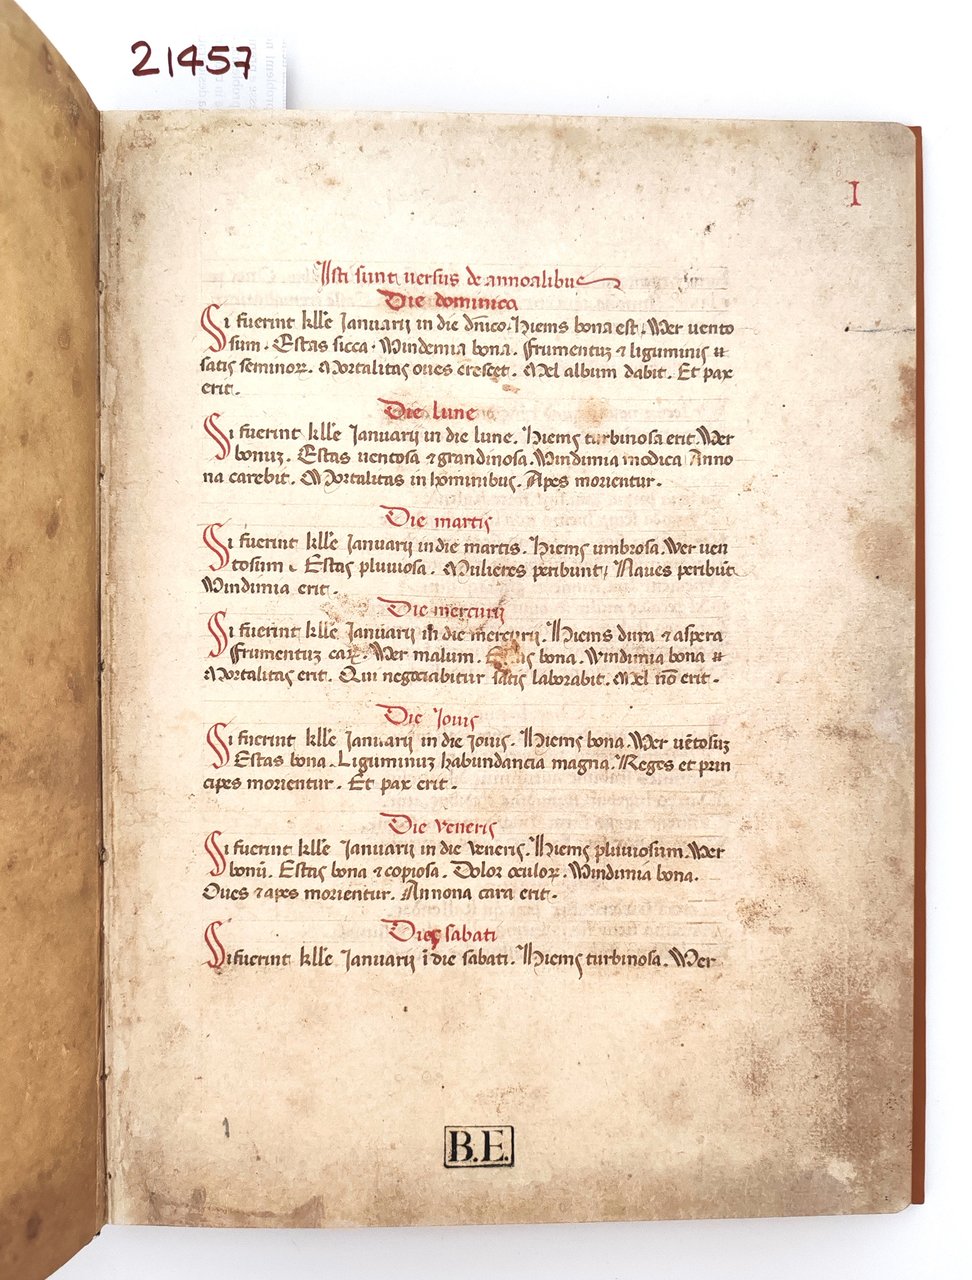 21457
I
Isti sunt versus de annoalibus
Die dominica
Si fuerint klle Januarij in die dnico. Hiems bona est. Wer uento
sum. Estas sicca. Windemia bona. Frumentuz ⁊ liguminis
satis seminoꝝ. Mortalitas oues crescet. Mel album dabit. Et pax
erit.
Die lune
Si fuerint klle Januarij in die lune. Hiems turbinosa erit. Wer
bonuz. Estas uentosa ⁊ grandinosa. Windimia modica Anno
na carebit. Mortalitas in hominibus. Apes morientur.
Die martis
Si fuerint klle Januarij in die martis. Hiems umbrosa. Wer uen
tosum. Estas pluuiosa. Mulieres peribunt; Naues peribūt
Windimia erit.
Die mercurij
Si fuerint klle Januarij in die mercurij. Hiems dura ⁊ aspera
Frumentuz caꝝ. Wer malum. Estas bona. Windimia bona
Mortalitas erit. Qui negociabitur satis laborabit. Mel nō erit.
Die Jouis
Si fuerint klle Januarij in die Jouis. Hiems bona. Wer uētosuz
Estas bona. Liguminuz habundancia magna. Reges et prin
cipes morientur. Et pax erit.
Die veneris
Si fuerint klle Januarij in die veneris. Hiems pluuiosum. Wer
bonū. Estas bona ⁊ copiosa. Dolor oculoꝝ. Windimia bona.
Oues ⁊ apes morientur. Annona cara erit.
Dies sabati
Si fuerint klle Januarij ī die sabati. Hiems turbinosa. Wer
B.E.